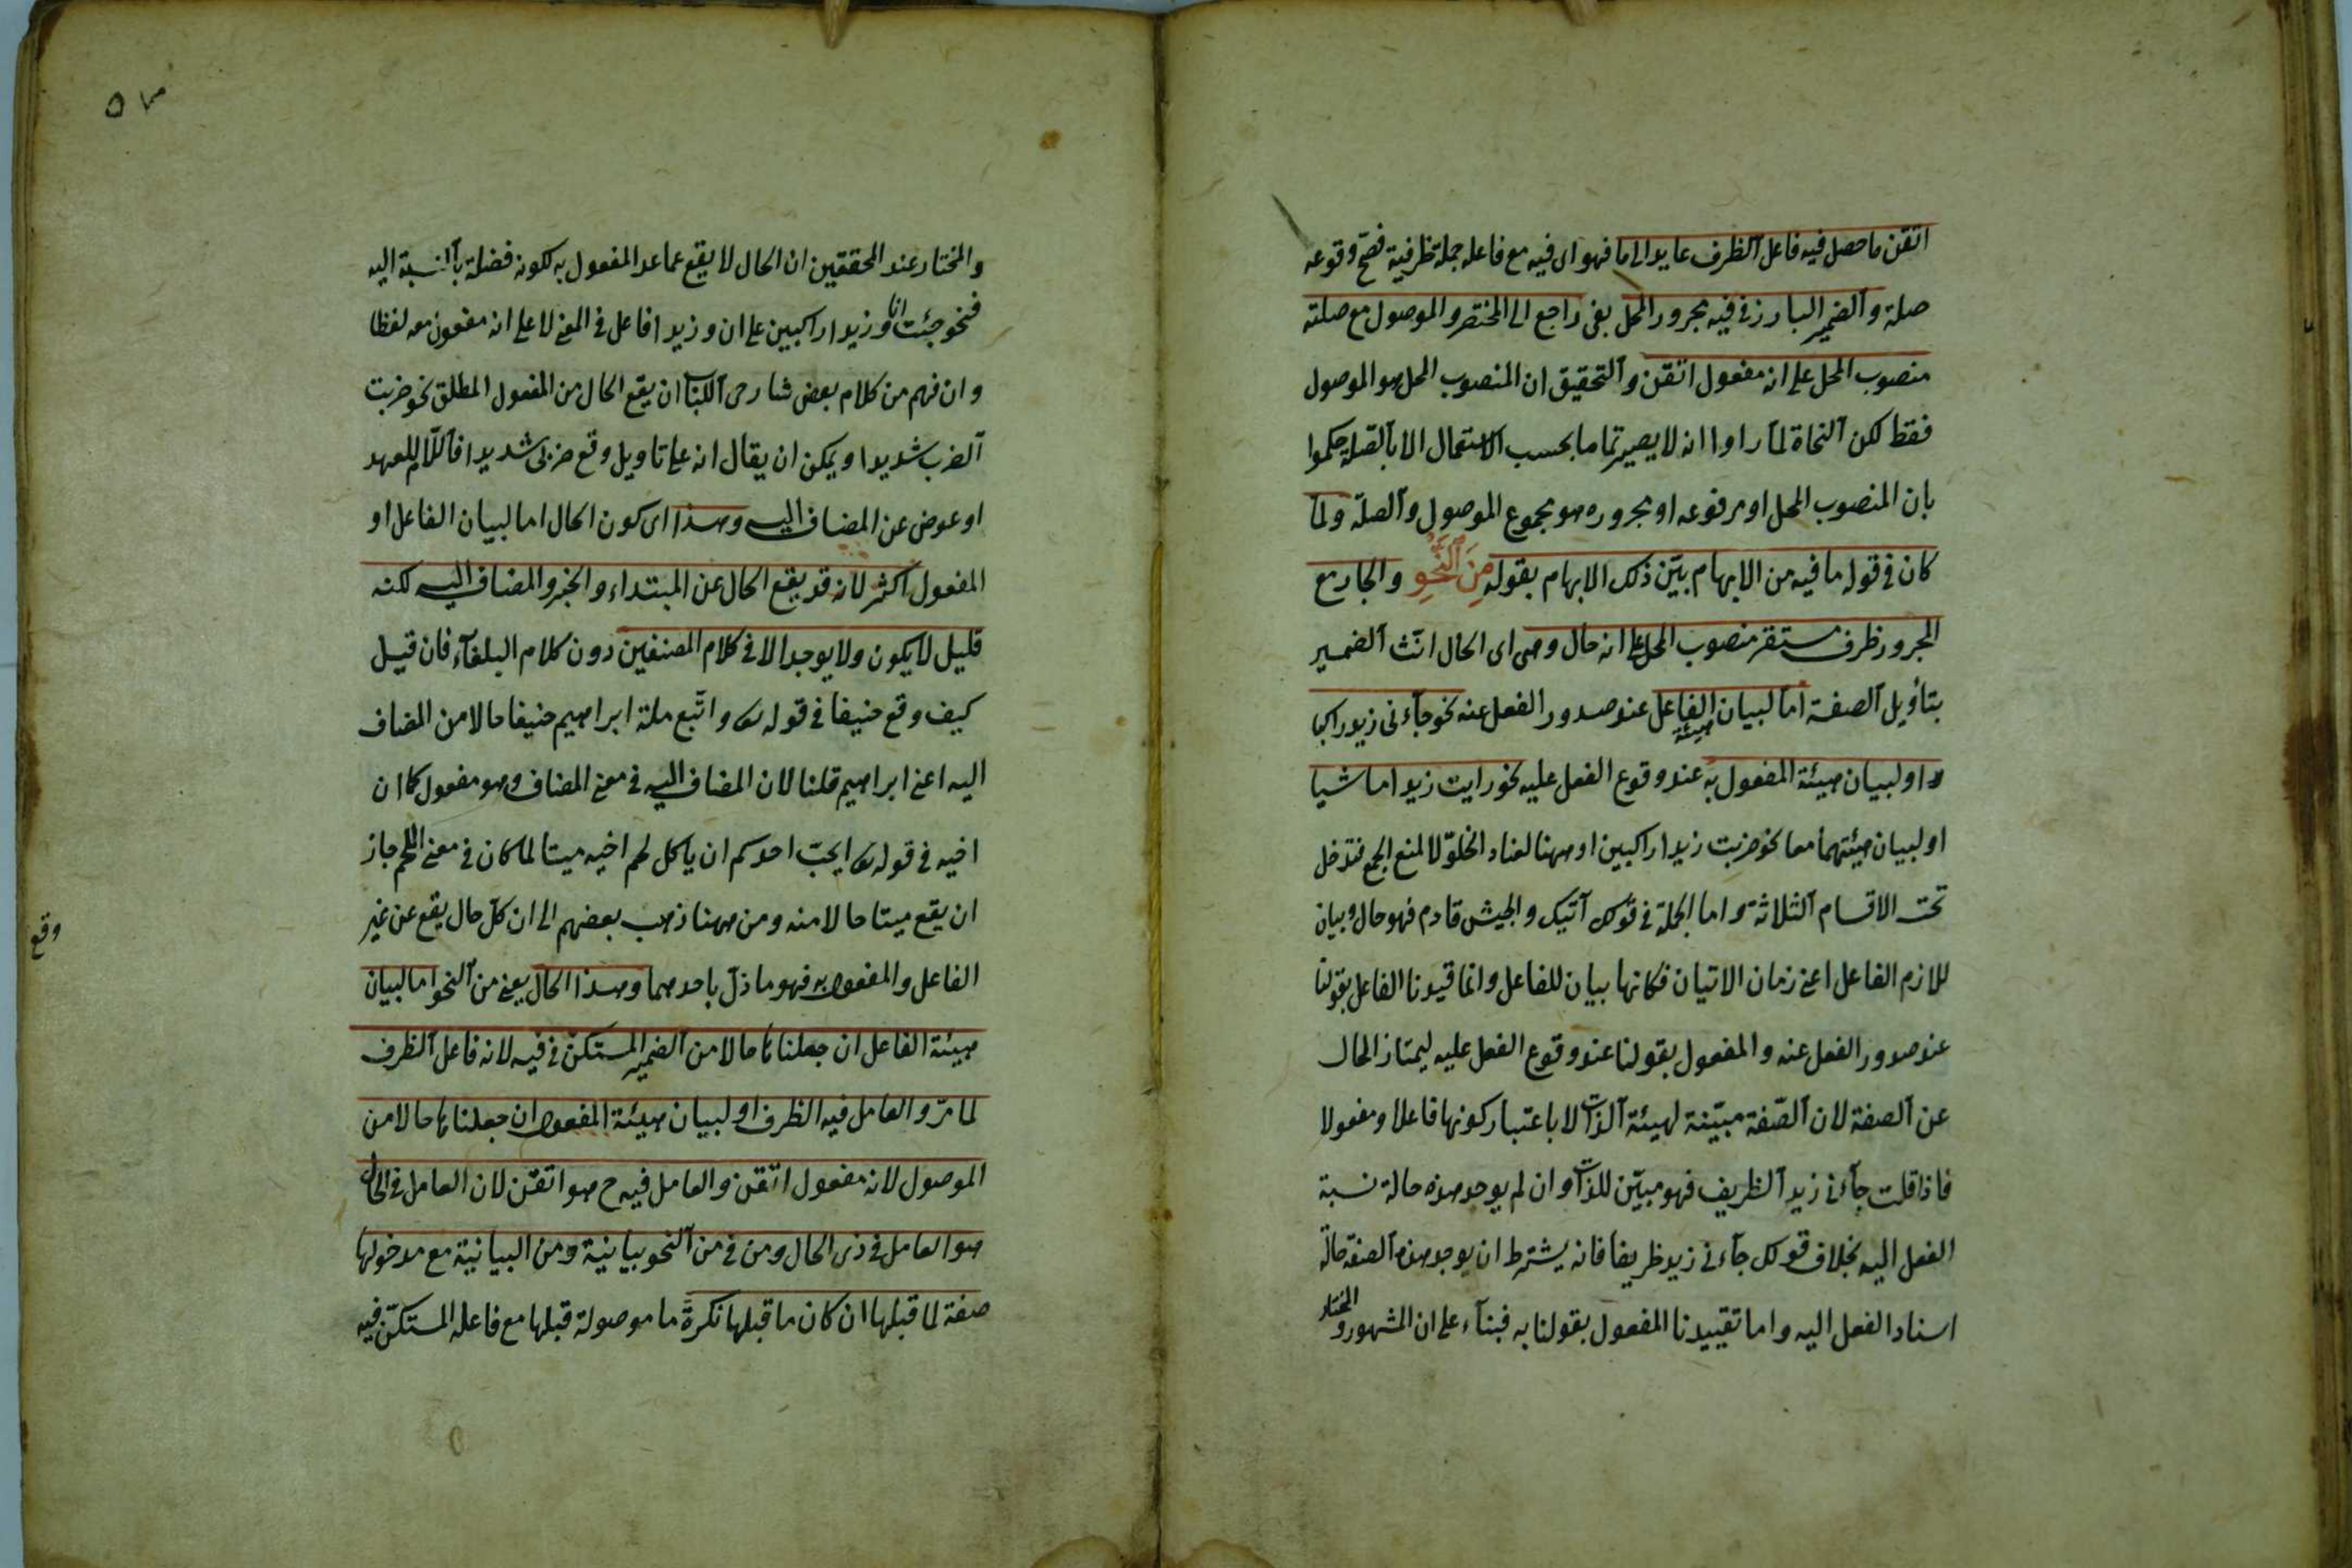 اتقن ما حصل فيه فاعل الظرف عايد الى ما فهو اى فيه مع فاعله جملة ظرفية فصح وقوعه
صلة والضمير البارز فى فيه مجرور المحل بفى راجع الى المختصر والموصول مع صلته
منصوب المحل على انه مفعول اتقن والتحقيق ان المنصوب المحل هو الموصول
فقط لكن النحاة لما راوا انه لا يصير تماما بحسب الاستعمال الا بالصلة حكموا
بان المنصوب المحل او مرفوعه او مجروره هو مجموع الموصول والصلة ولما
كان فى قوله ما فيه من الابهام بيّن ذلك الابهام بقوله مِنَ النَّحْوِ والجار مع
المجرور ظرف مستقر منصوب المحل على انه حال وهى اى الحال انّث الضمير
بتأويل الصفة اما لبيان هيئة الفاعل عند صدور الفعل عنه نحو جآءنى زيد راكبا
او لبيان هيئة المفعول به عند وقوع الفعل عليه نحو رايت زيدا ماشيا
او لبيان هيئتهما معا نحو ضربت زيدا راكبين او ههنا لعناد الخلوّ لا لمنع الجمع فتدخل
تحت الاقسام الثلاثة واما الجملة فى قولك آتيك والجيش قادم فهو حال وبيان
للازم الفاعل اعنى زمان الاتيان فكانها بيان للفاعل وانما قيدنا الفاعل بقولنا
عند صدور الفعل عنه والمفعول بقولنا عند وقوع الفعل عليه ليمتاز الحال
عن الصفة لان الصّفة مبيّنة لهيئة الذات لا باعتبار كونها فاعلا ومفعولا
فاذا قلت جآءنى زيد الظريف فهو مبيّن للذات وان لم يوجد هذه حالة نسبة
الفعل اليه بخلاف قولك جآءنى زيد ظريفا فانه يشترط ان يوجد هذه الصفة حالة
اسناد الفعل اليه واما تقييدنا المفعول بقولنا به فبنآء على ان المشهور والمختار
٥٣
والمختار عند المحققين ان الحال لا يقع عما عدا المفعول به لكونه فضلة بالنسبة اليه
فنحو جئت انا وزيدا راكبين على ان وزيدا فاعل فى المعنى لا على انه مفعول معه لفظا
وان فهم من كلام بعض شارحى الكتاب ان يقع الحال من المفعول المطلق نحو ضربت
الضرب شديدا ويمكن ان يقال انه على تاويل وقع ضربى شديدا فاللّام للعهد
او عوض عن المضاف اليه وهذا اى كون الحال اما لبيان الفاعل او
المفعول اكثر لانه قد يقع الحال عن المبتداء والخبر والمضاف اليه لكنه
قليل لا يكون ولا يوجد الا فى كلام المصنفين دون كلام البلغآء فان قيل
كيف وقع حنيفا فى قوله تع واتّبع ملة ابراهيم حنيفا حالا من المضاف
اليه اعنى ابراهيم قلنا لان المضاف اليه فى معنى المضاف وهو مفعول كما ان
اخيه فى قوله تع ايحبّ احدكم ان ياكل لحم اخيه ميتا لما كان فى معنى اللحم جاز
ان يقع ميتا حالا منه ومن ههنا ذهب بعضهم الى ان كلّ حال يقع عن غير
الفاعل والمفعول به فهو ماوّل باحدهما وهذا الحال يعنى من النحو اما لبيان
هيئة الفاعل ان جعلناها حالا من الضمير المستكنّ فى فيه لانه فاعل الظرف
لما مرّ والعامل فيه الظرف او لبيان هيئة المفعول ان جعلناها حالا من
الموصول لانه مفعول اتقن والعامل فيه ح هو اتقن لان العامل فى الحال
هو العامل فى ذى الحال ومن فى من النحو بيانية ومن البيانية مع مدخولها
صفة لما قبلها ان كان ما قبلها نكرة ما موصولة قبلها مع فاعله المستكنّ فيه
وقع